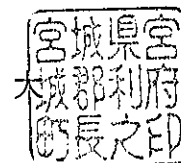 宮城県宮
大
城郡利府
町長之印